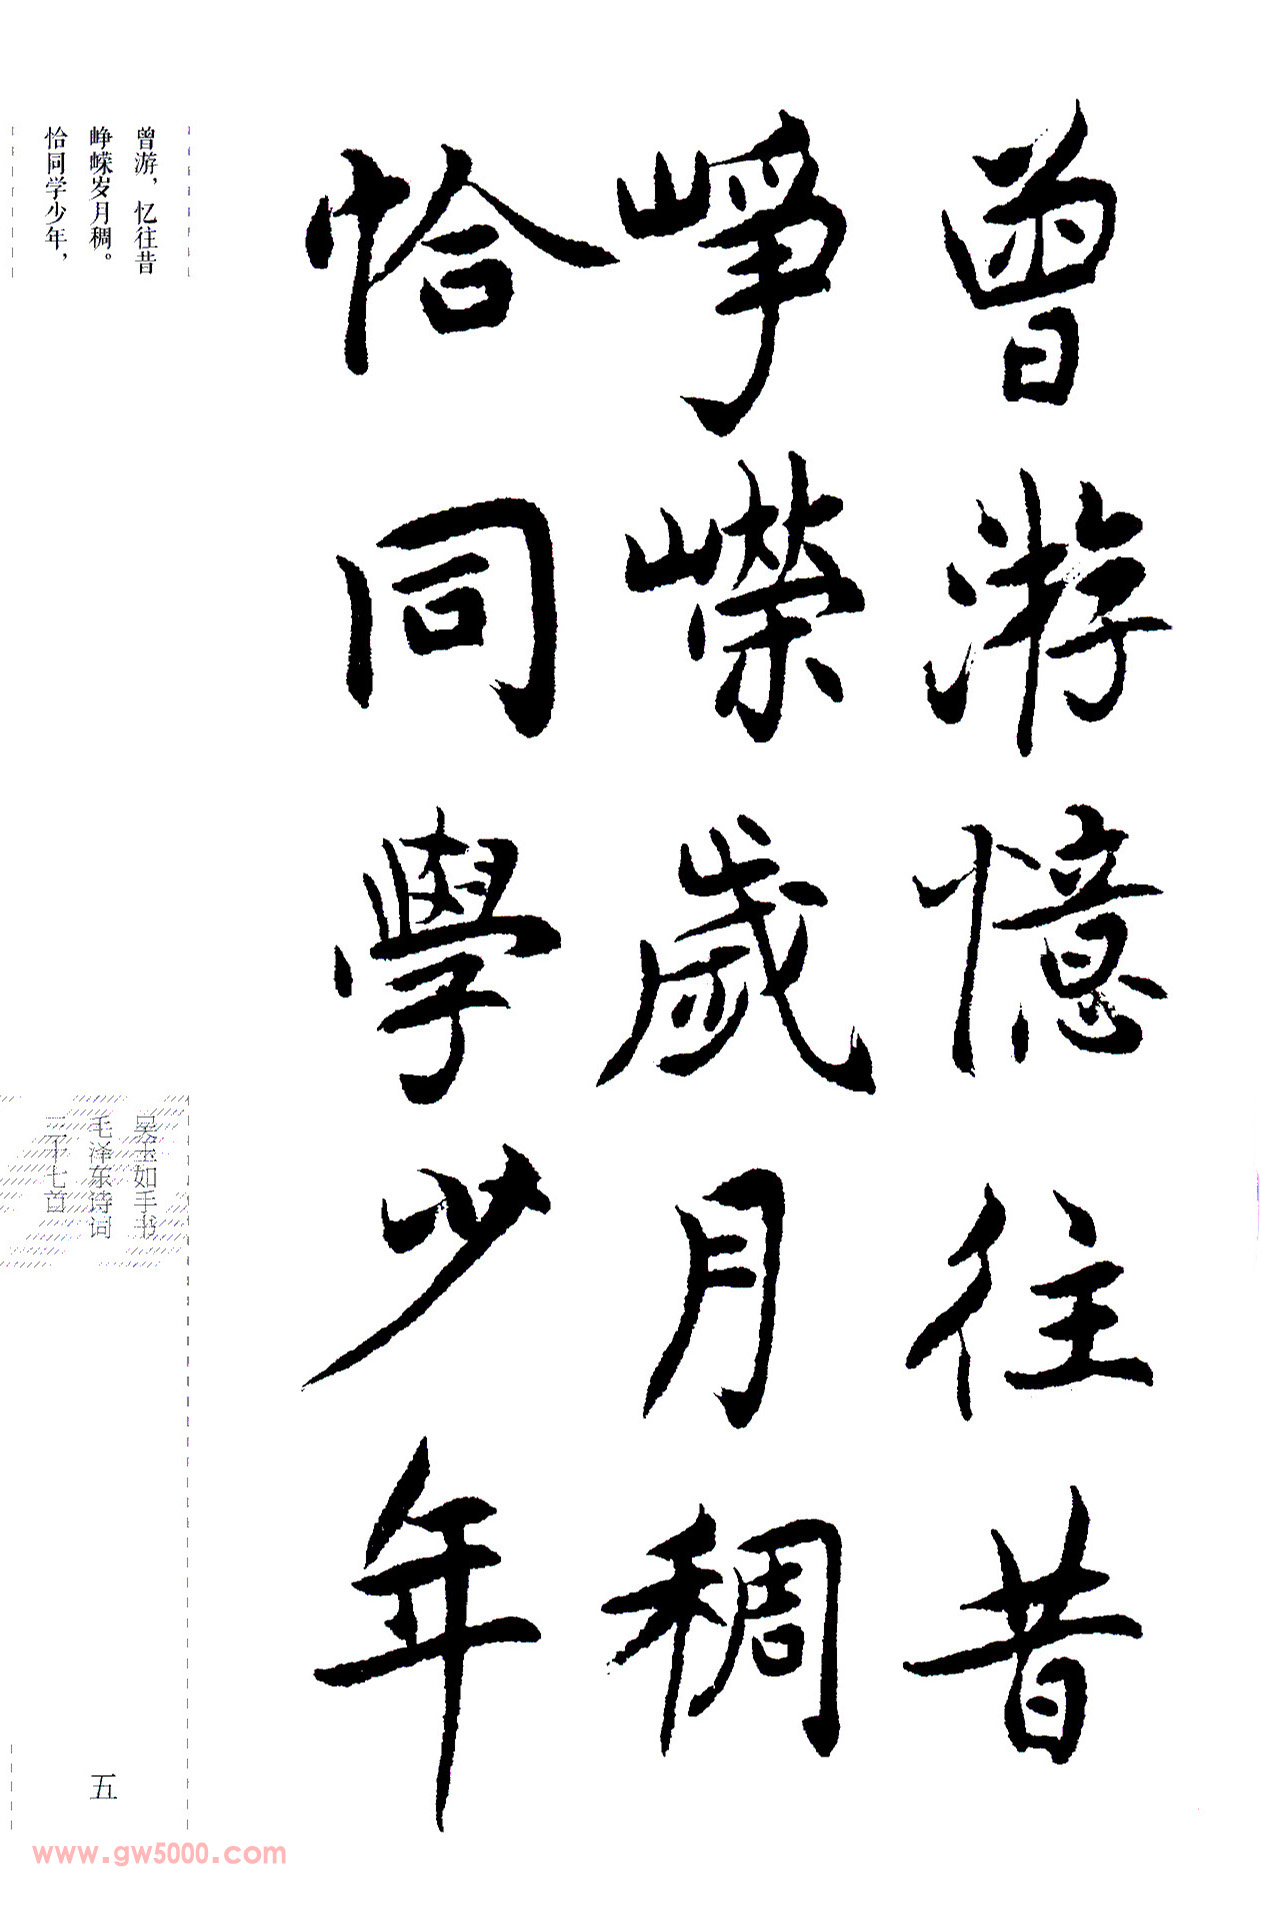 曾游憶往昔
崢嶸歲月稠
恰同學少年
曾游，忆往昔
峥嵘岁月稠。
恰同学少年，
吴玉如手书
毛泽东诗词
三十七首
五
www.gw5000.com